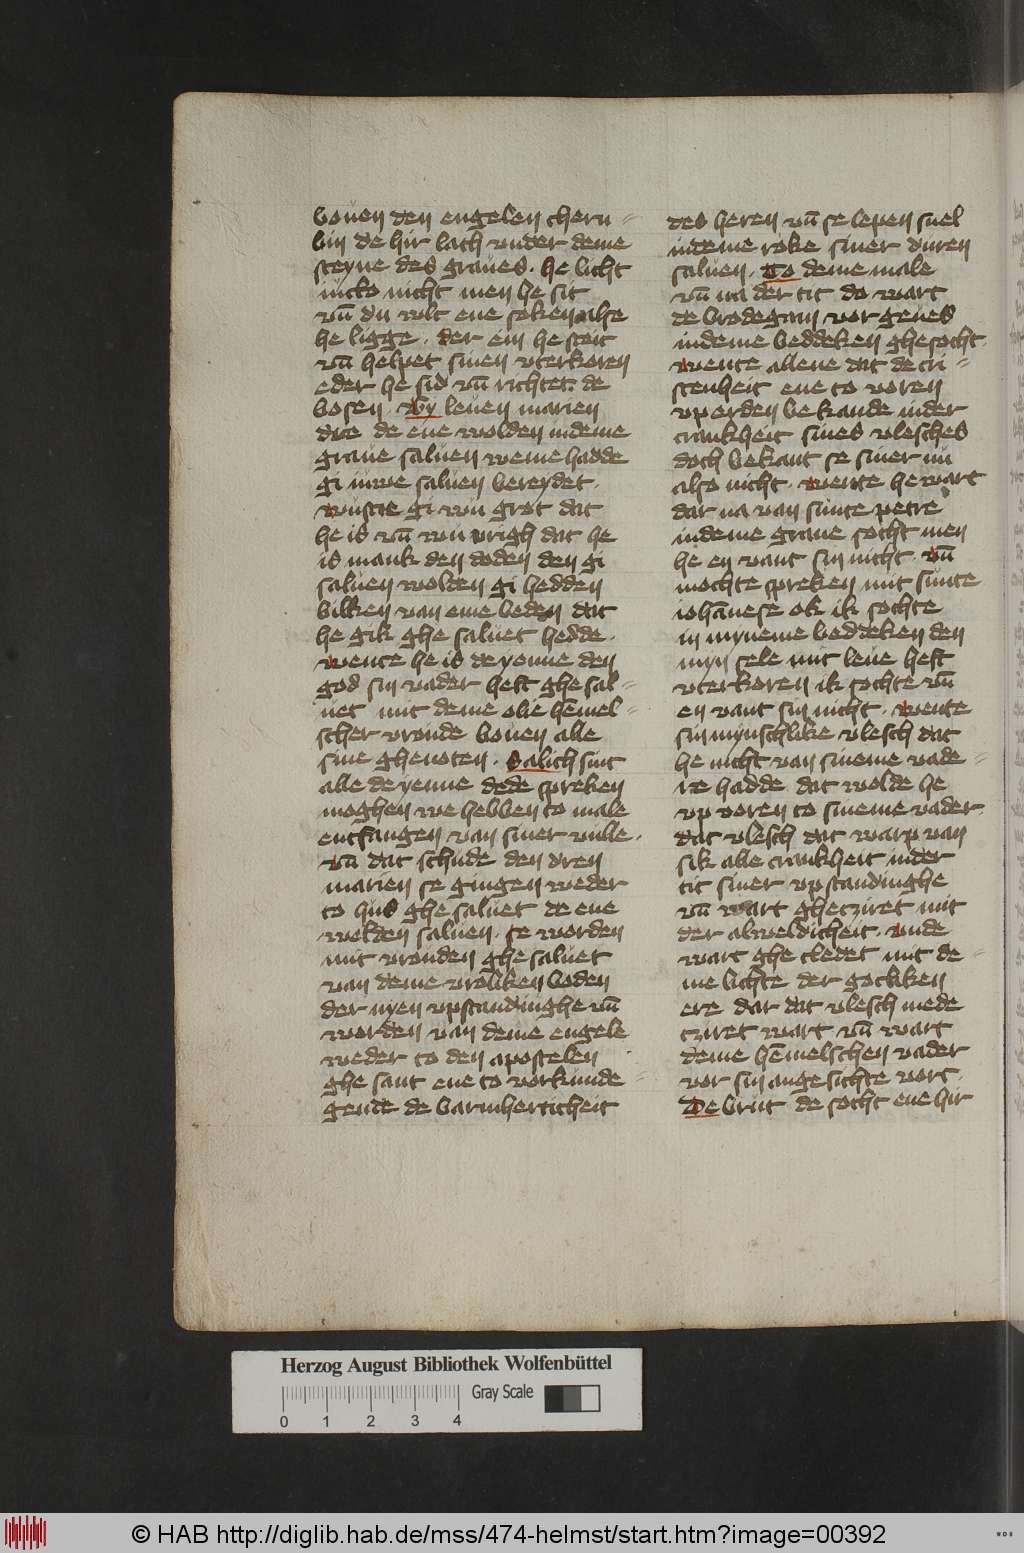 boven den engelen cheru=
bin de hir lach vnder deme
steyne des graues. he licht
nicto nicht men he sit
vn̄ du wlt ene soken alse
he ligge. der em he steit
vn̄ helpet sinen vterkoren
eder he sid vn̄ richtet de
bosen. Gy leuen marien
dre de ene wolden indeme
graue saluen weme hadde
gi iuwe saluen bereydet.
wuste gi wu grot dat
he is vn̄ wu vrigh dat he
is mank den doden den gi
saluen wolden gi hedden
billken van eme beden dat
he gik ghe saluet hedde.
wente he is de yenne den
god sin vader heft ghe sal=
uet mit deme olie hemel=
scher vronde bouen alle
sine ghenoten. Salich sint
alle de yenne dede spreken
moghen we hebben to male
entfangen van siner vulle.
vn̄ dat schude den dren
marien se gingen weder
to hus ghe saluet de ene
wolden saluen. se worden
mit vronden ghe saluet
van deme vroliken boden
der nyen vpstandinghe vn̄
worden van deme engele
weder to den apostelen
ghe sant ene to vorkunde=
gende de barmherticheit
des heren vn̄ se lepen snel
indeme roke siner duren
saluen. To deme male
vn̄ na der tit do wart
de brodegam vorgeues
indeme beddeken ghesocht.
wente allene dat de cri=
stenheit ene to voren
vp erden bekande inder
crankheit sines vlesches
doch bekant se siner nu
also nicht. wente he wart
dar na van sunte petre
indeme graue socht men
he en vant sin nicht. vn̄
mochte spreken mit sunte
iohānese ok ik sochte
in myneme beddeken den
myn sele mit leue heft
vterkoren ik sochte vn̄
en vant sin nicht. wente
sin mynschlike vlesch dat
he nicht van sineme vade=
re hadde dat wolde he
vp voren to sineme vader.
dat vlesch dat warp van
sik alle crankheit inder
tit siner vpstandinghe
vn̄ wart ghecziret mit
der alweldicheit. vnde
wart ghe cledet mit de=
me lichte der gotliken
ere dar dat vlesch mede
cziret wart vn̄ wart
deme hēmelschen vader
vor sin angesichte vort.
De brut de socht ene hir
Herzog August Bibliothek Wolfenbüttel
Gray Scale
0 1 2 3 4
© HAB http://diglib.hab.de/mss/474-helmst/start.htm?image=00392